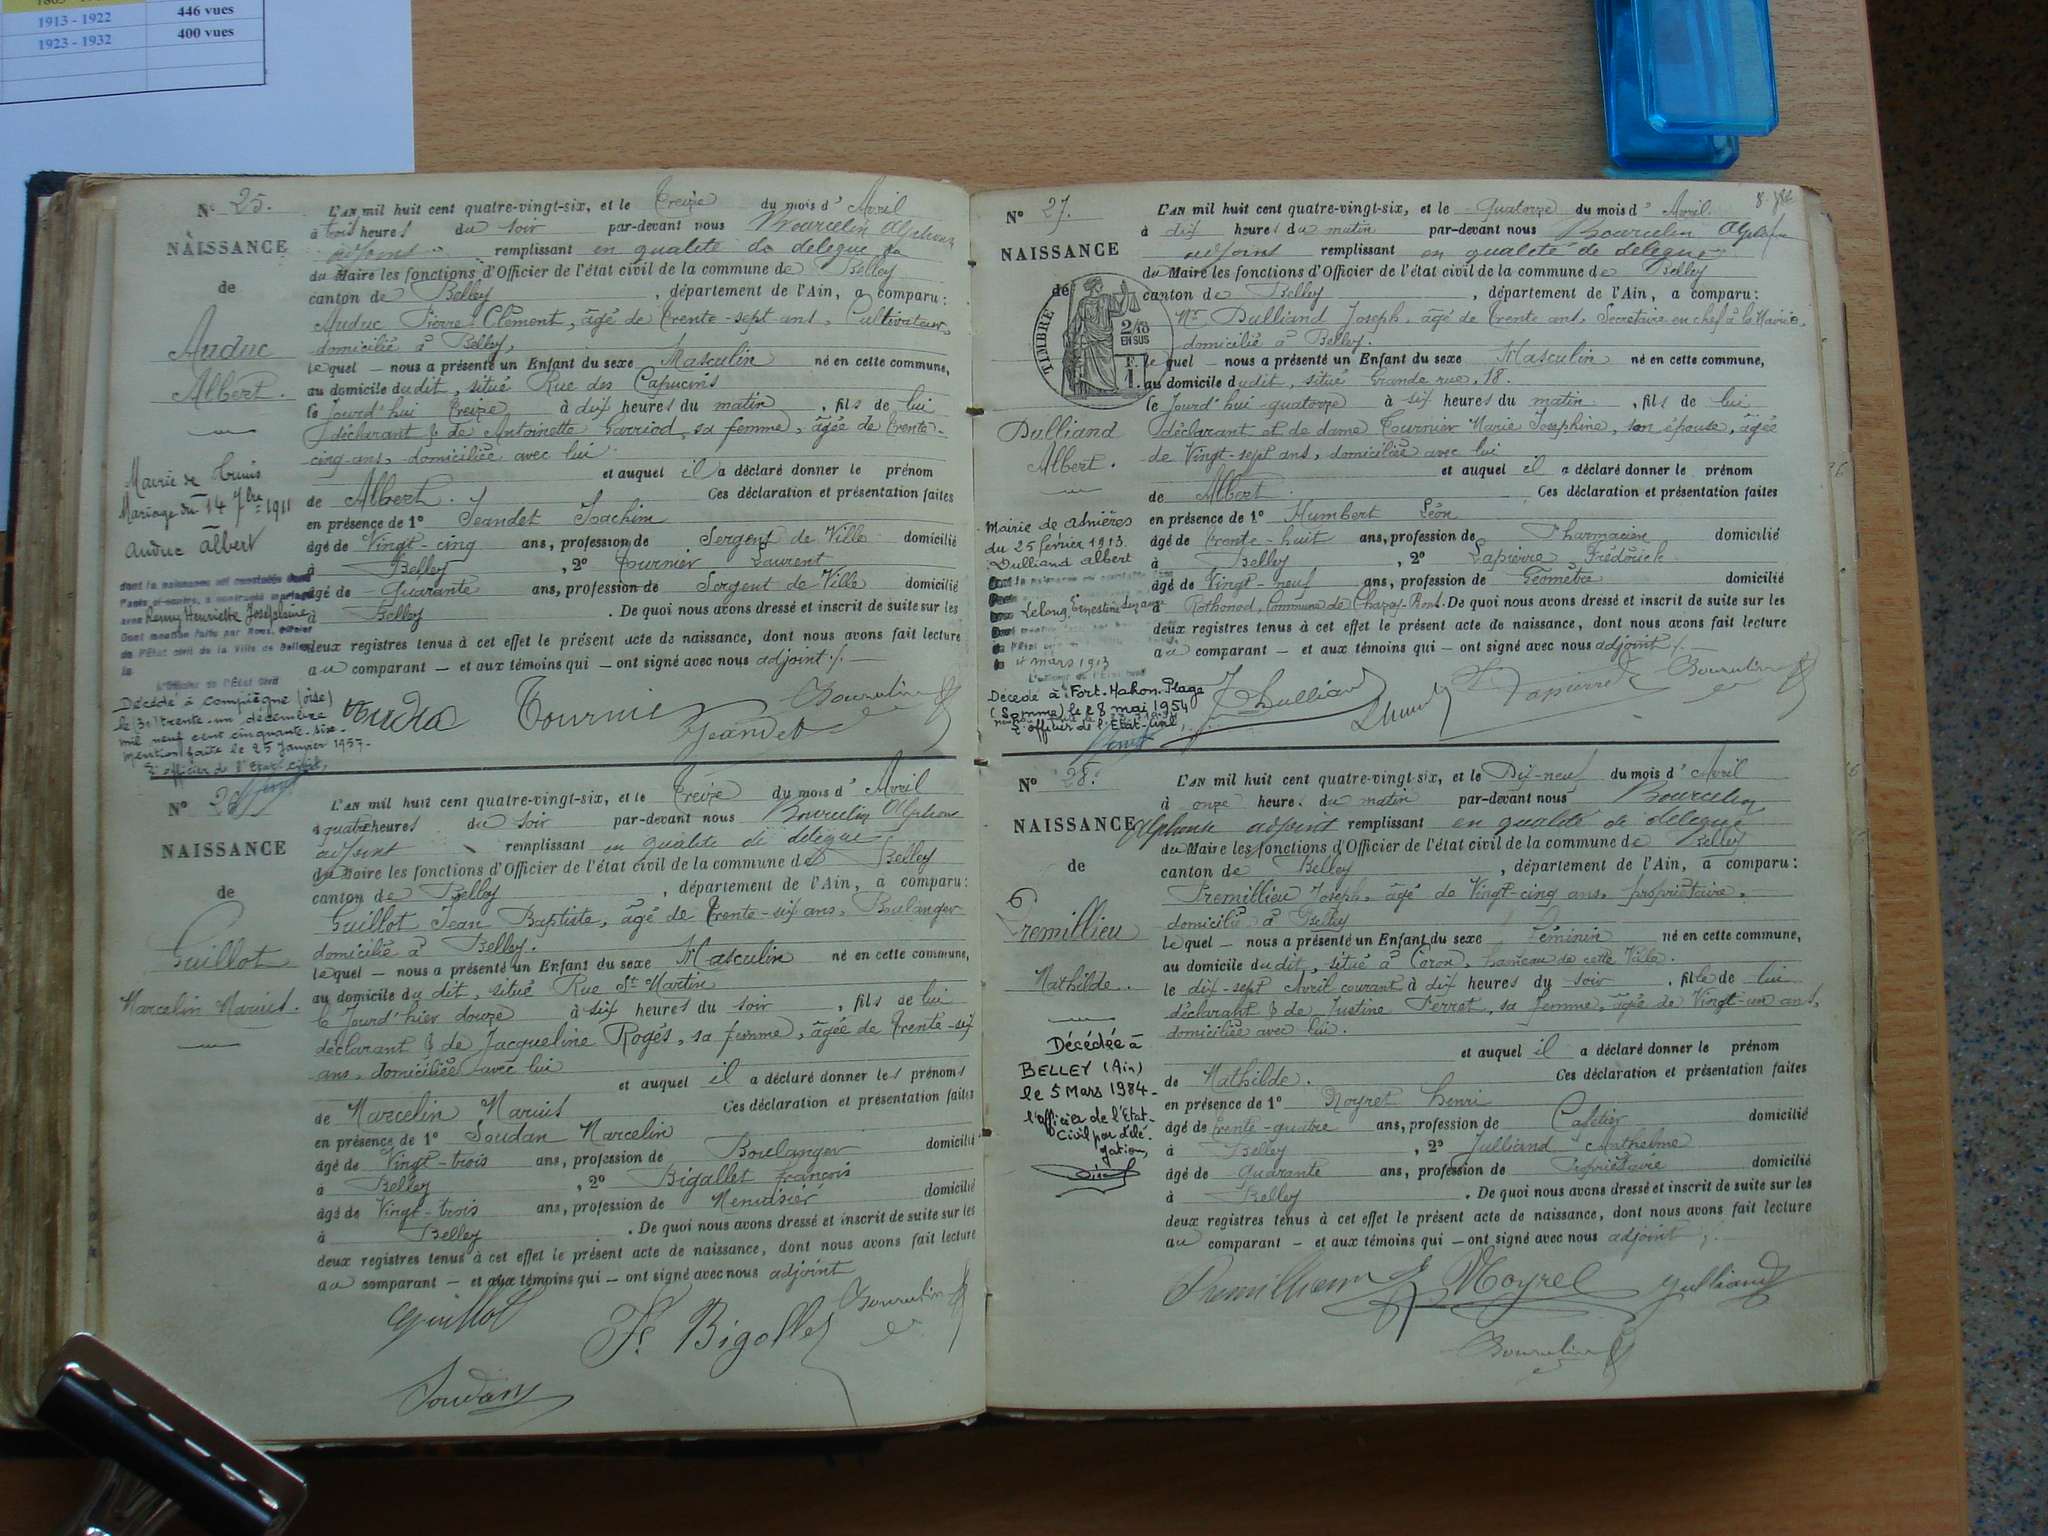 446 vues
1913 - 1922
1923 - 1932 400 vues
N° 25.
NAISSANCE
de
Auduc
Albert.
Mairie de Tunis
Mariage du 14 7bre 1911
Auduc Albert
Remy Henriette Joséphine
Dont mention faite par Nous, Officier
de l'État civil de la Ville de Belley
le
L'Officier de l'État Civil
Décédé à Compiègne (Oise)
le (31) trente-un décembre
mil neuf cent cinquante-six.
Mention faite le 25 Janvier 1957.
L'officier de l'Etat civil,
L'AN mil huit cent quatre-vingt-six, et le Treize du mois d'Avril
à trois heures du soir par-devant nous Bourcelin Alphonse
adjoint remplissant en qualité de délégué
du Maire les fonctions d'Officier de l'état civil de la commune de Belley
canton de Belley, département de l'Ain, a comparu:
Auduc Pierre Clément, âgé de trente-sept ans, Cultivateur,
domicilié à Belley,
lequel — nous a présenté un Enfant du sexe Masculin né en cette commune,
au domicile dudit, situé Rue des Capucins
le jourd'hui treize à dix heures du matin, fils de lui
déclarant & de Antoinette Garriod, sa femme, âgée de trente-
cinq ans, domiciliée avec lui
et auquel il a déclaré donner le prénom
de Albert. Ces déclaration et présentation faites
en présence de 1° Jeandet Joachim
âgé de Vingt-cinq ans, profession de Sergent de Ville domicilié
à Belley, 2° Tournier Laurent
âgé de Quarante ans, profession de Sergent de Ville domicilié
à Belley. De quoi nous avons dressé et inscrit de suite sur les
deux registres tenus à cet effet le présent acte de naissance, dont nous avons fait lecture
au comparant — et aux témoins qui — ont signé avec nous adjoint ./.
Auduc Tournier Jeandet Bourcelin
N° 26
NAISSANCE
de
Guillot
Marcelin Marius.
L'AN mil huit cent quatre-vingt-six, et le Treize du mois d'Avril
à quatre heures du soir par-devant nous Bourcelin Alphonse
adjoint remplissant en qualité de délégué
du Maire les fonctions d'Officier de l'état civil de la commune de Belley
canton de Belley, département de l'Ain, a comparu:
Guillot Jean Baptiste, âgé de trente-six ans, Boulanger
domicilié à Belley.
lequel — nous a présenté un Enfant du sexe Masculin né en cette commune,
au domicile du dit, situé Rue St Martin
le jourd'hier douze à six heures du soir, fils de lui
déclarant & de Jacqueline Rogés, sa femme, âgée de trente-six
ans, domiciliée avec lui
et auquel il a déclaré donner les prénoms
de Marcelin Marius Ces déclaration et présentation faites
en présence de 1° Soudan Marcelin
âgé de Vingt-trois ans, profession de Boulanger domicilié
à Belley, 2° Bigallet françois
âgé de Vingt-trois ans, profession de Menuisier domicilié
à Belley. De quoi nous avons dressé et inscrit de suite sur les
deux registres tenus à cet effet le présent acte de naissance, dont nous avons fait lecture
au comparant — et aux témoins qui — ont signé avec nous adjoint
Guillot Fs Bigallet Bourcelin
Soudan
N° 27.
NAISSANCE
de
TIMBRE
2/10
EN SUS
1 F.
Dulliand
Albert.
Mairie de Asnières
du 25 février 1913.
Dulliand Albert
Lelong Ernestine Suzanne
4 mars 1913
Décédé à Fort-Mahon-Plage
(Somme) le 28 mai 1954
L'officier de l'Etat-Civil,
L'AN mil huit cent quatre-vingt-six, et le Quatorze du mois d'Avril.
à dix heures du matin par-devant nous Bourcelin Alphonse
adjoint remplissant en qualité de délégué
du Maire les fonctions d'Officier de l'état civil de la commune de Belley
canton de Belley, département de l'Ain, a comparu:
Mr. Dulliand Joseph, âgé de trente ans, Secrétaire en chef à la Mairie,
domicilié à Belley.
lequel — nous a présenté un Enfant du sexe Masculin né en cette commune,
au domicile dudit, situé Grande rue, 18.
le jourd'hui quatorze à six heures du matin, fils de lui
déclarant et de dame Tournier Marie Josephine, son épouse, âgée
de Vingt-sept ans, domiciliée avec lui
et auquel il a déclaré donner le prénom
de Albert. Ces déclaration et présentation faites
en présence de 1° Humbert Léon
âgé de trente-huit ans, profession de Pharmacien domicilié
à Belley, 2° Lapierre Fréderick
âgé de Vingt-neuf ans, profession de Géomètre domicilié
à Rothonod, Commune de De quoi nous avons dressé et inscrit de suite sur les
deux registres tenus à cet effet le présent acte de naissance, dont nous avons fait lecture
au comparant — et aux témoins qui — ont signé avec nous adjoint ./.
J Dulliand Lapierre Bourcelin
N° 28.
NAISSANCE
de
Premillieu
Mathilde.
Décédée à
BELLEY (Ain)
le 5 Mars 1984-
l'Officier de l'Etat-
Civil par délé-
gation,
L'AN mil huit cent quatre-vingt-six, et le Dix-neuf du mois d'Avril
à onze heures du matin par-devant nous Bourcelin
Alphonse adjoint remplissant en qualité de délégué
du Maire les fonctions d'Officier de l'état civil de la commune de Belley
canton de Belley, département de l'Ain, a comparu:
Premillieu Joseph, âgé de Vingt-cinq ans, propriétaire,
domicilié à Belley
lequel — nous a présenté un Enfant du sexe Féminin né en cette commune,
au domicile dudit, situé à Coron, hameau de cette Ville.
le dix-sept Avril courant à dix heures du soir, fille de lui
déclarant & de Justine Perret, sa femme, âgée de Vingt-un ans,
domiciliée avec lui.
et auquel il a déclaré donner le prénom
de Mathilde. Ces déclaration et présentation faites
en présence de 1° Moyret henri
âgé de trente-quatre ans, profession de Cafetier domicilié
à Belley, 2° Julliand Anthelme
âgé de quarante ans, profession de Propriétaire domicilié
à Belley. De quoi nous avons dressé et inscrit de suite sur les
deux registres tenus à cet effet le présent acte de naissance, dont nous avons fait lecture
au comparant — et aux témoins qui — ont signé avec nous adjoint ./.
Premillieu Moyret Julliand
Bourcelin